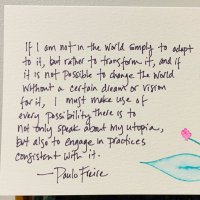 If I am not in the world simply to adapt
to it, but rather to transform it, and if
it is not possible to change the world
without a certain dream or vision
for it, I must make use of
every possibility there is to
not only speak about my utopia,
but also to engage in practices
consistent with it.
—Paulo Freire